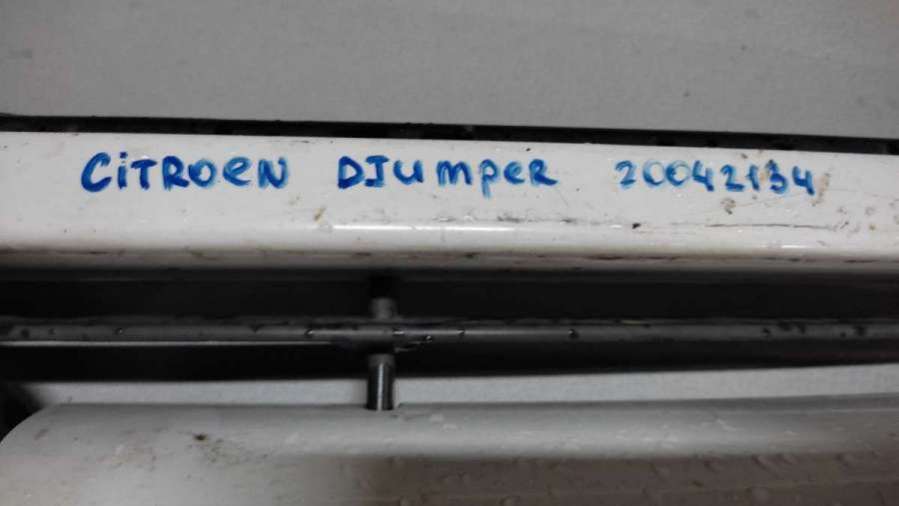 CiTROeN DJumpeR 20042134